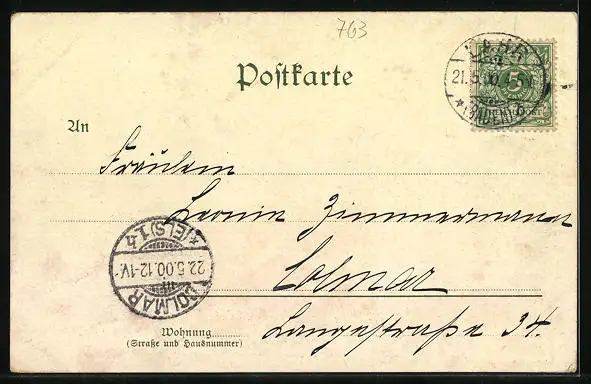 763
Postkarte
LAHR
21.5.00
* (BADEN)
5
An
Fräulein
Leonie Zimmermann
Colmar
Langestraße 34.
* (ELS) 1. h
22.5.00.12-1V.
COLMAR
Wohnung
(Straße und Hausnummer)